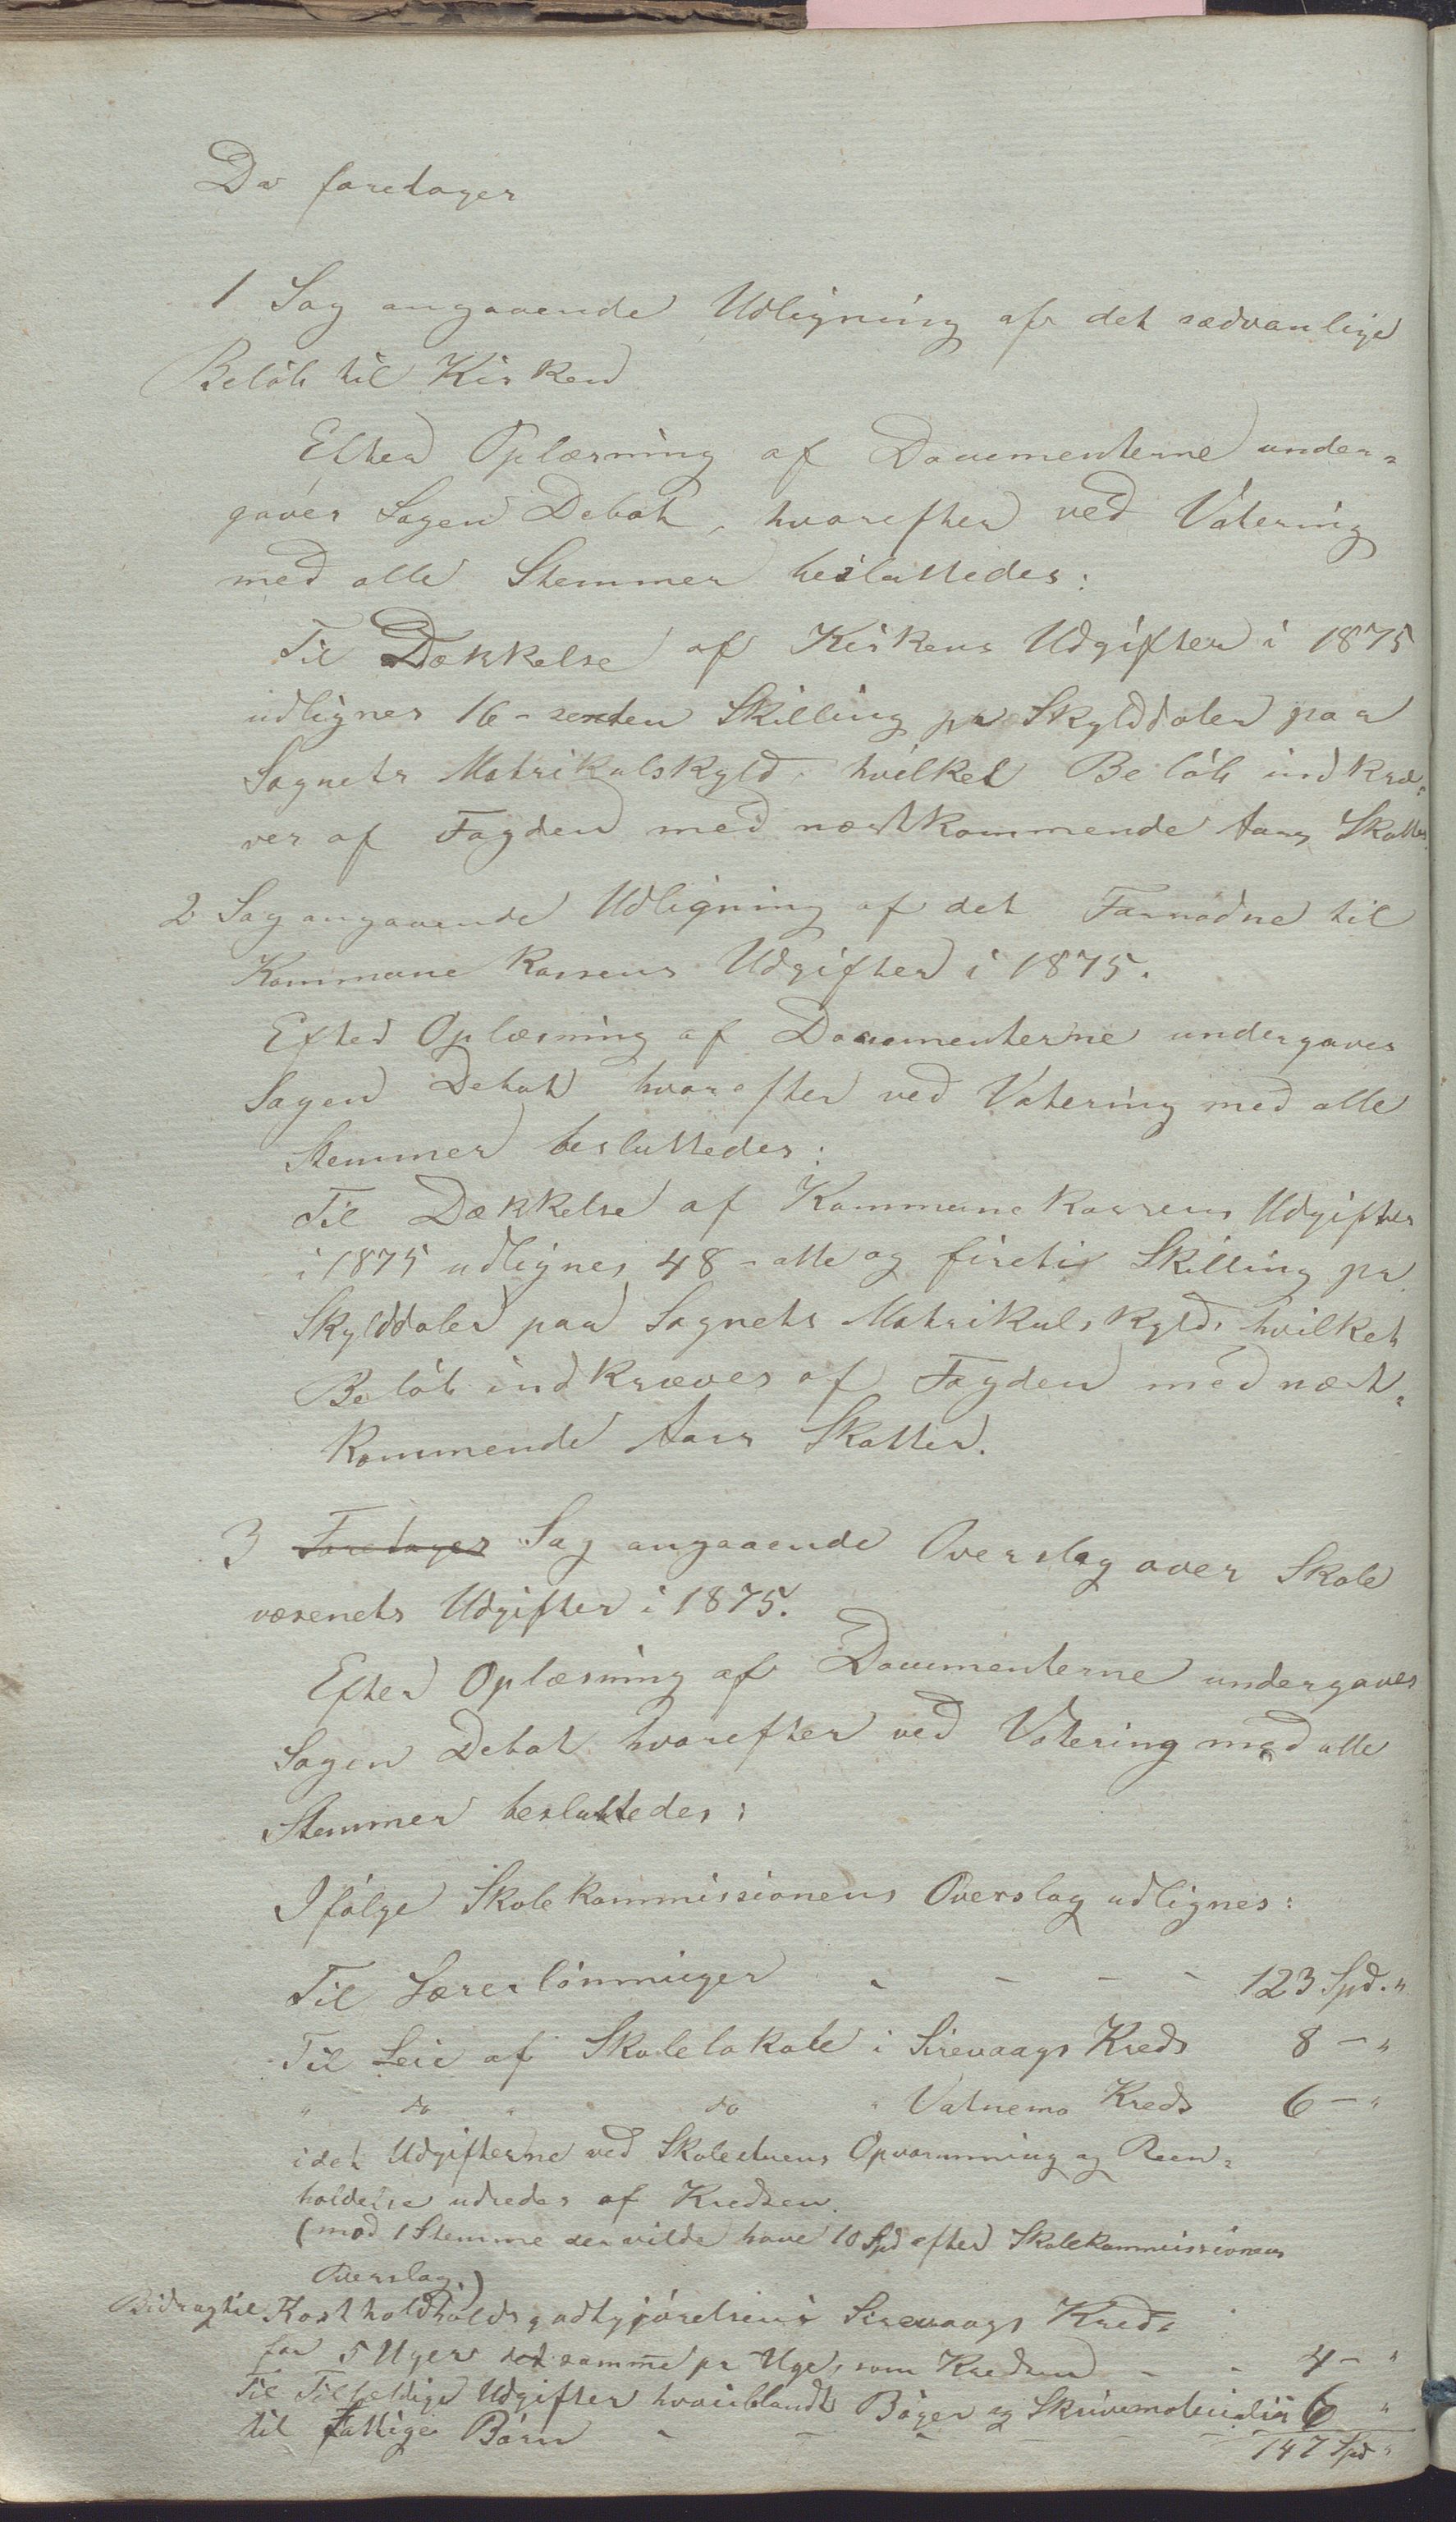 Da foretages
1 Sag angaaende Udligning af det sædvanlige
Beløb til Kirken
Efter Oplæsning af Documenterne under-
gaves Sagen Debat, hvorefter ved Votering
med alle Stemmer besluttedes:
Til Dækkelse af Kirkens Udgifter i 1875
udlignes 16 - sexten Skilling pr Skylddaler paa
Sognets Matrikulskyld, hvilket Beløb indkræ-
ves af Fogden med næstkommende Aars Skatter.
2 Sag angaaende Udligning af det Fornødne til
Kommune Kassens Udgifter i 1875.
Efter Oplæsning af Documenterne undergaves
Sagen Debat hvorefter ved Votering med alle
Stemmer besluttedes:
Til Dækkelse af Kommune Kassens Udgifter
i 1875 udlignes 48 - otte og firetie Skilling pr
Skylddaler paa Sognets Matrikulskyld, hvilket
Beløb indkræves af Fogden med næst-
kommende Aars Skatter.
3 Foretages Sag angaaende Overslag over Skole
væsenets Udgifter i 1875.
Efter Oplæsning af Documenterne undergaves
Sagen Debat hvorefter ved Votering med alle
Stemmer besluttedes:
Ifølge Skolekommissionens Overslag udlignes:
Til Lærerlønninger - - - - 123 Spd. "
Til Leie af Skolelokale i Sirevaags Kreds 8 - "
" do " do " Vatnemo Kreds 6 - "
idet Udgifterne ved Skolestuens Opvarmning og Reen-
holdelse udredes af Kredsen.
(mod 1 Stemme der vilde have 10 Spd efter Skolekommissionens
Overslag)
Bidrag til Kostholdholdsgodtgjørelsen i Sirevaags Kreds
for 5 Uger det samme pr Uge, som Kredsen - - 4 - "
Til Tilfældige Udgifter hvoriblandt Bøger og Skrivematerialier 6 "
til fattige Børn - - - - 147 Spd "